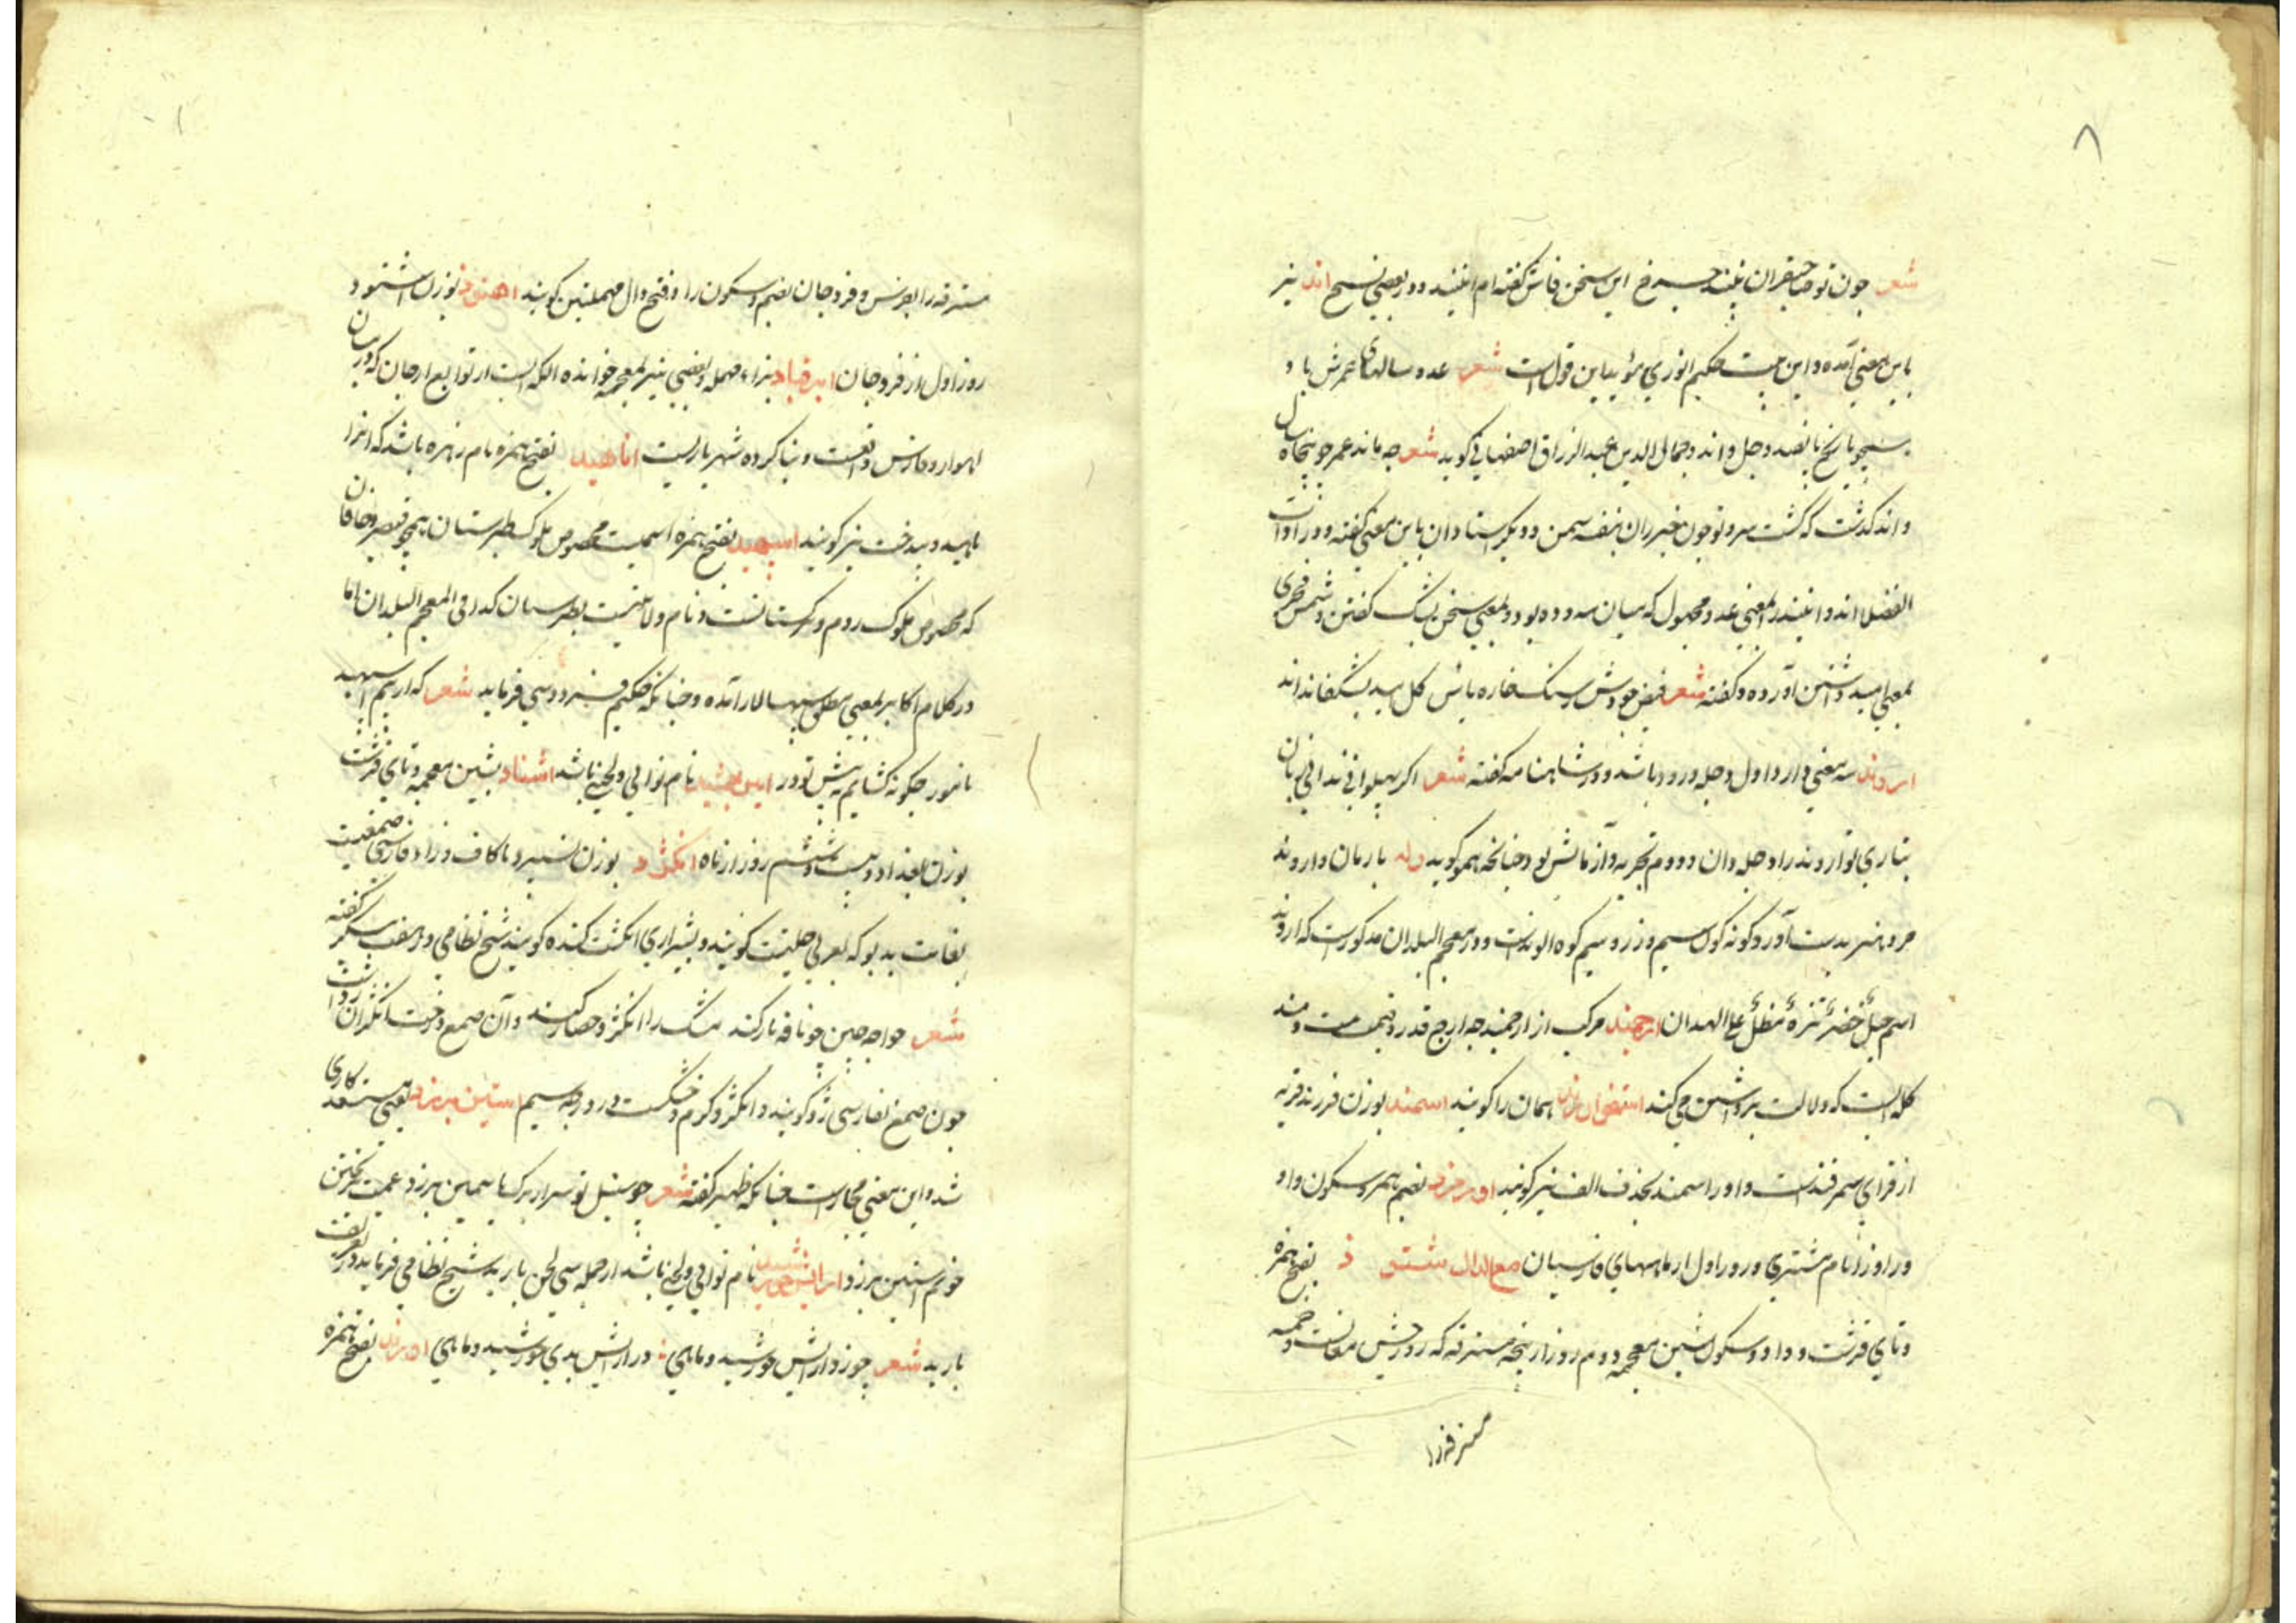 ۸
شعر چون تو صاحبقران نبیند چرخ این سخن فاش گفته‌ام انیند و در بعضی نسخ اند نیز
باین معنی آمده و این بیت حکیم انوری مؤید این قول است شعر عدد سالهای عمرش باد
همچو تاریخ پانصد و چل و اند و جمال الدین عبدالرزاق اصفهانی گوید شعر چه ماند عمر چو پنجاه سال
و اند گذشت که گشت سرو تو چون خیزران بنفشه سمن و دیگر استادان باین معنی گفته و در ادات
الفضلا اند و انیند بمعنی عدد مجهول که میان سه و ده بود و بمعنی سخن بشک گفتن و شمس فخری
بمعنی امید داشتن آورده و گفته شعر فیض جودش ز سنگ خاره باش گل امید بشکفاند اند
اروند سه معنی دارد اول دجله و رود باشد و در شاهنامه گفته شعر اگر پهلوانی ندانی زبان
بتازی تو اروند را دجله دان دوم تجربه و آزمایش بود چنانچه همو گوید وله بارمان و اروند
مرد هنر بدست آورد گونه گون سیم و زر و سیم کوه الوندست و در معجم البلدان مذکورست که اروند
اسم جبل خضر نزه مظل علی الهمدان ارجمند مرکب از ارج مند چه ارج قدر و قیمت است و مند
کلمه ایست که دلالت بر داشتن می کند استخوان رند همان را گویند اسمند بوزن فرزند قریه
از قرای سمرقندست و او را سمند بحذف الف نیز گویند اورمزد بضم همزه و سکون واو
و را و زا نام مشتری و روز اول از ماههای فارسیان مع الدال شتو د بفتح همزه
و تای قرشت و واو و سکون شین معجمه دوم روز از پنجه مسترقه که روز جشن مغانست و خمسه
مسترقه را
مسترقه را بعرنس و فروجان بضم و سکون را و فتح دال مهملتین گویند اهنود بوزن اشنود
روز اول از فروجان ابرقباد براء مهمله و بعضی نیز بمعجمه خوانده الکه ایست از توابع ارجان که در میان
اهواز و فارس واقعست و بنا کرده شهریاریست اناهید بفتح همزه نام زهره باشد که آنرا
ناهید و بیدخت نیز گویند اسپهبد بفتح همزه اسمیست مخصوص ملوک طبرستان همچو قیصر و خاقان
که مخصوص ملوک روم و ترکستانست و نام ولایتیست بطبرستان کذا فی المعجم البلدان اما
در کلام اکابر بمعنی مطلق سپهسالار آمده و چنانکه حکیم فردوسی فرماید شعر که ارستم اسپهبد
نامور چگونه گشایم به پیش تو در ایبن جمشید نام نوایی و لحنی باشد اشتاد بشین معجمه و تای قرشت
بوزن بغداد بیست و ششم روز از ماه انگژد بوزن نسپرد با کاف و زاء فارسی صمغیست
بغایت بدبو که بعربی حلتیت گویند و بشیرازی انگشت کنده گویند شیخ نظامی در منقبت سکندر گفته
شعر خواجه چین چو نافه بار کند مشک را ز انگژد حصار کند و آن صمغ درخت انگدان است
چون صمغ بفارسی ژد گویند و انگژد گرم و خشکست در درجه سیم استین برزد یعنی مستعد کاری
شد و این معنی مجازست چنانکه ظهیر گفته شعر چو سنبل تو سر از برگ یاسمین برزد غمت بریختن
خونم آستین برزد ارایش خورشید نام نوایی و لحنی باشد از جمله سی لحن باربد شیخ نظامی فرماید در تعریف
باربد شعر چو زد آرایش خورشید و ماهی در آرایش بدی خورشید و ماهی اورند بفتح همزه